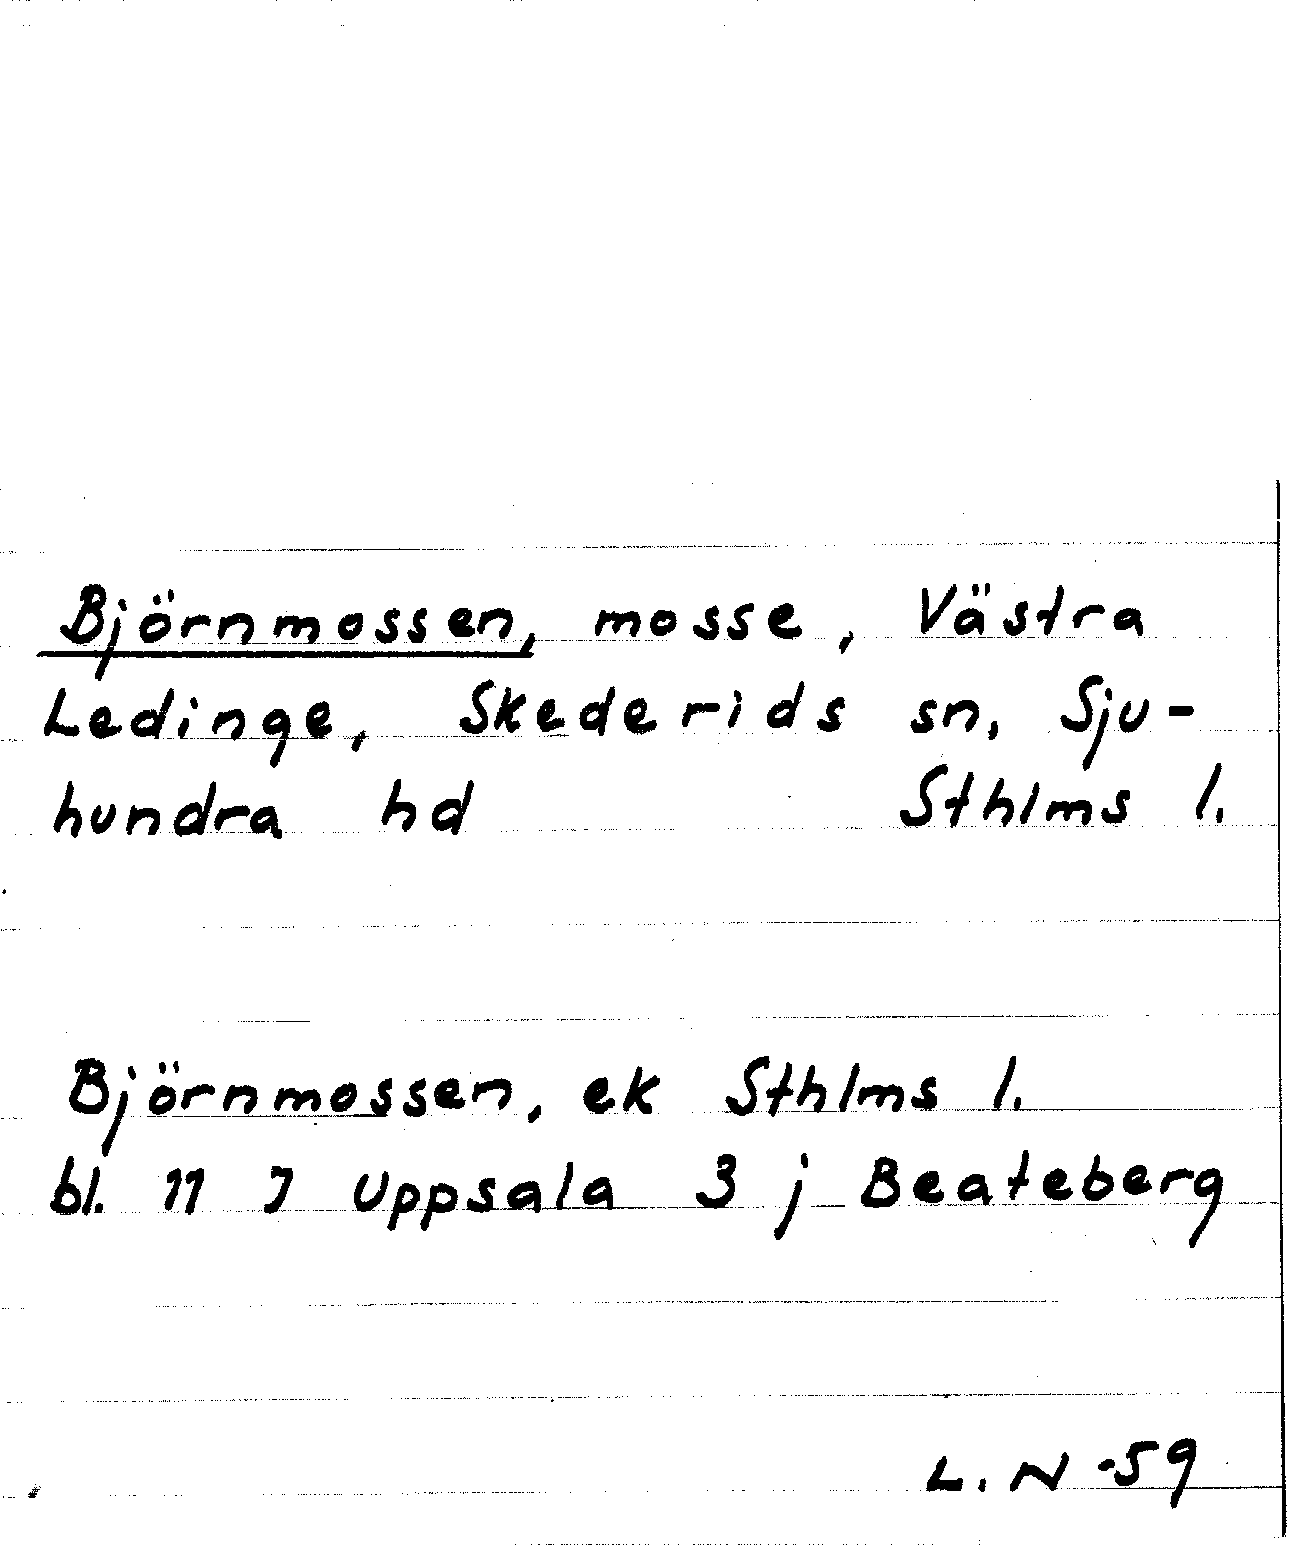 Björnmossen, mosse, Västra
Ledinge, Skederids sn, Sju-
hundra hd Sthlms l.
Björnmossen, ek Sthlms l.
bl. 11 I Uppsala 3 j Beateberg
L. N -59